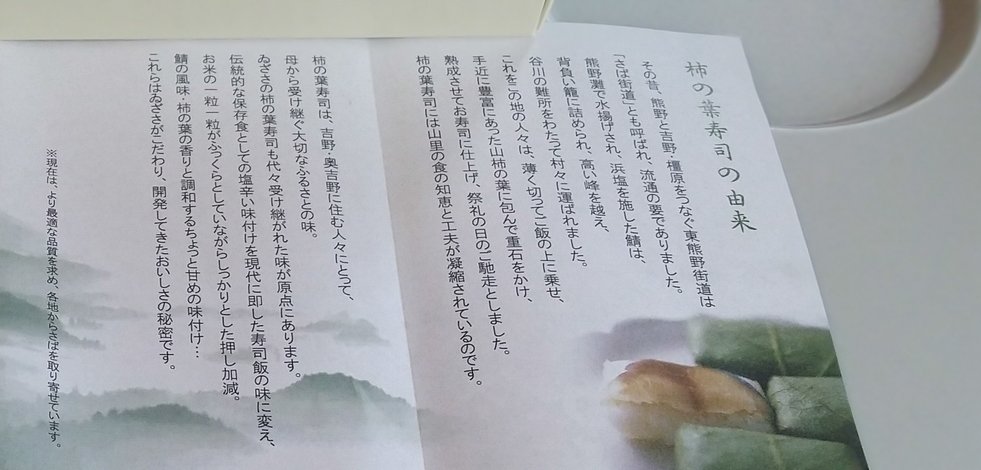 柿の葉寿司の由来
その昔、熊野と吉野・橿原をつなぐ東熊野街道は
「さば街道」とも呼ばれ、流通の要でありました。
熊野灘で水揚げされ、浜塩を施した鯖は、
背負い籠に詰められ、高い峰を越え、
谷川の難所をわたって村々に運ばれました。
これをこの地の人々は、薄く切ってご飯の上に乗せ、
手近に豊富にあった山柿の葉に包んで重石をかけ、
熟成させてお寿司に仕上げ、祭礼の日のご馳走としました。
柿の葉寿司には山里の食の知恵と工夫が凝縮されているのです。
柿の葉寿司は、吉野・奥吉野に住む人々にとって、
母から受け継ぐ大切なふるさとの味。
ゐざさの柿の葉寿司も代々受け継がれた味が原点にあります。
伝統的な保存食としての塩辛い味付けを現代に即した寿司飯の味に変え、
お米の一粒一粒がふっくらとしていながらしっかりとした押し加減。
鯖の風味・柿の葉の香りと調和するちょっと甘めの味付け…
これらはゐざさがこだわり、開発してきたおいしさの秘密です。
※現在は、より最適な品質を求め、各地からさばを取り寄せています。